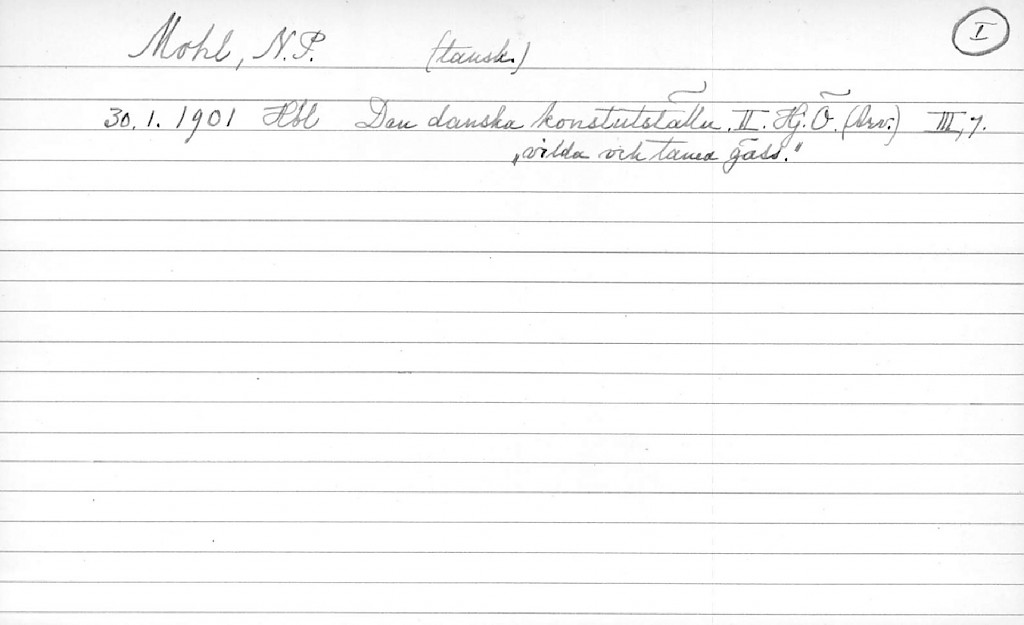 Mohl, N.P. (tansk.) I
30.1.1901 Hbl Den danska konstutställn. II. Hj. Ö. (Arv.) III, 7.
„vilda och tama gäss."